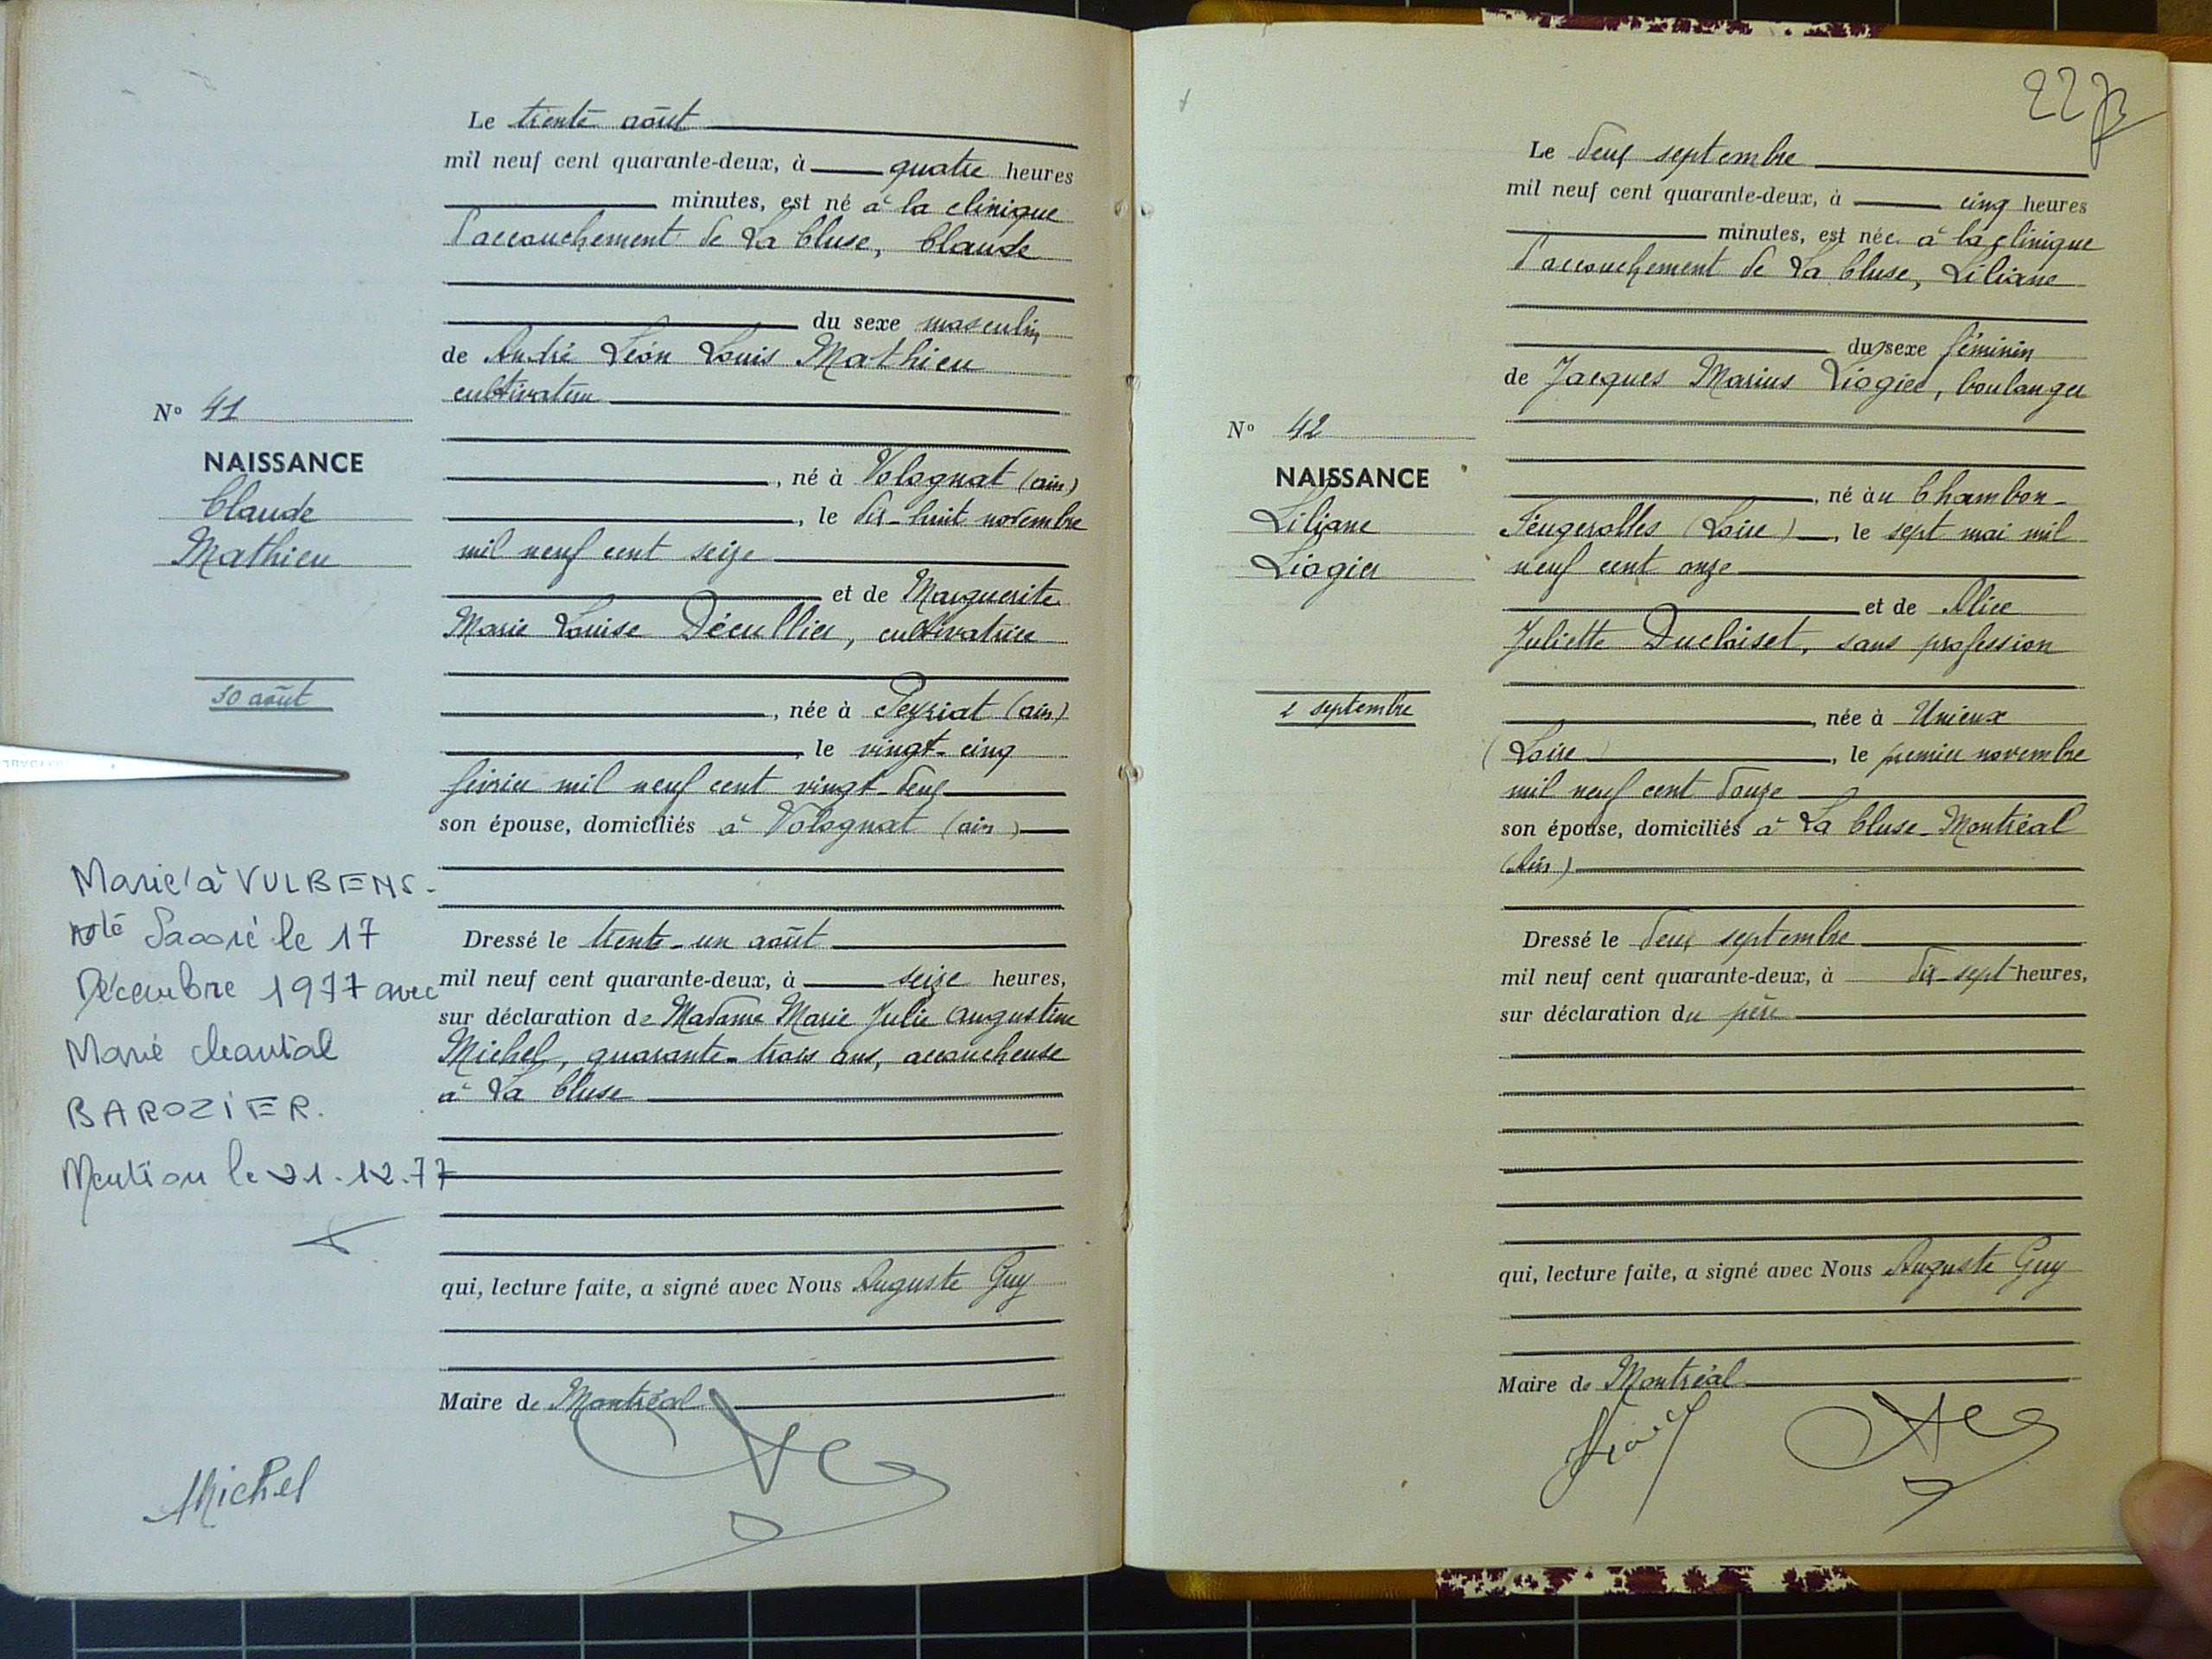 Le trente août
mil neuf cent quarante-deux, à quatre heures
minutes, est né à la clinique
d'accouchement de La Cluse, Claude
du sexe masculin
de André Léon Louis Mathieu
cultivateur
né à Volognat (ain)
, le dix-huit novembre
mil neuf cent seize
et de Marguerite
Marie Louise Décullier, cultivatrice
, née à Peyriat (ain)
le vingt-cinq
février mil neuf cent vingt-deux
son épouse, domiciliés à Volognat (ain)
Dressé le trente-un août
mil neuf cent quarante-deux, à seize heures,
sur déclaration de Madame Marie Julie Augustine
Michel, quarante-trois ans, accoucheuse
à La Cluse
qui, lecture faite, a signé avec Nous Auguste Guy
Maire de Montréal
N° 41
NAISSANCE
Claude
Mathieu
30 août
Marié à VULBENS.
Savoie le 17
Décembre 1977 avec
Marie Chantal
BAROZIER.
Mention le 21.12.77
Michel
227
Le deux septembre
mil neuf cent quarante-deux, à cinq heures
minutes, est née à la clinique
d'accouchement de La Cluse, Liliane
du sexe féminin
de Jacques Marius Liogier, boulanger
, né au Chambon-
Feugerolles (Loire), le sept mai mil
neuf cent onze
et de Alice
Juliette Duclaiset, sans profession
, née à Unieux
(Loire), le premier novembre
mil neuf cent douze
son épouse, domiciliés à La Cluse-Montréal
(Ain)
Dressé le deux septembre
mil neuf cent quarante-deux, à dix-sept heures,
sur déclaration du père
qui, lecture faite, a signé avec Nous Auguste Guy
Maire de Montréal
N° 42
NAISSANCE
Liliane
Liogier
2 septembre